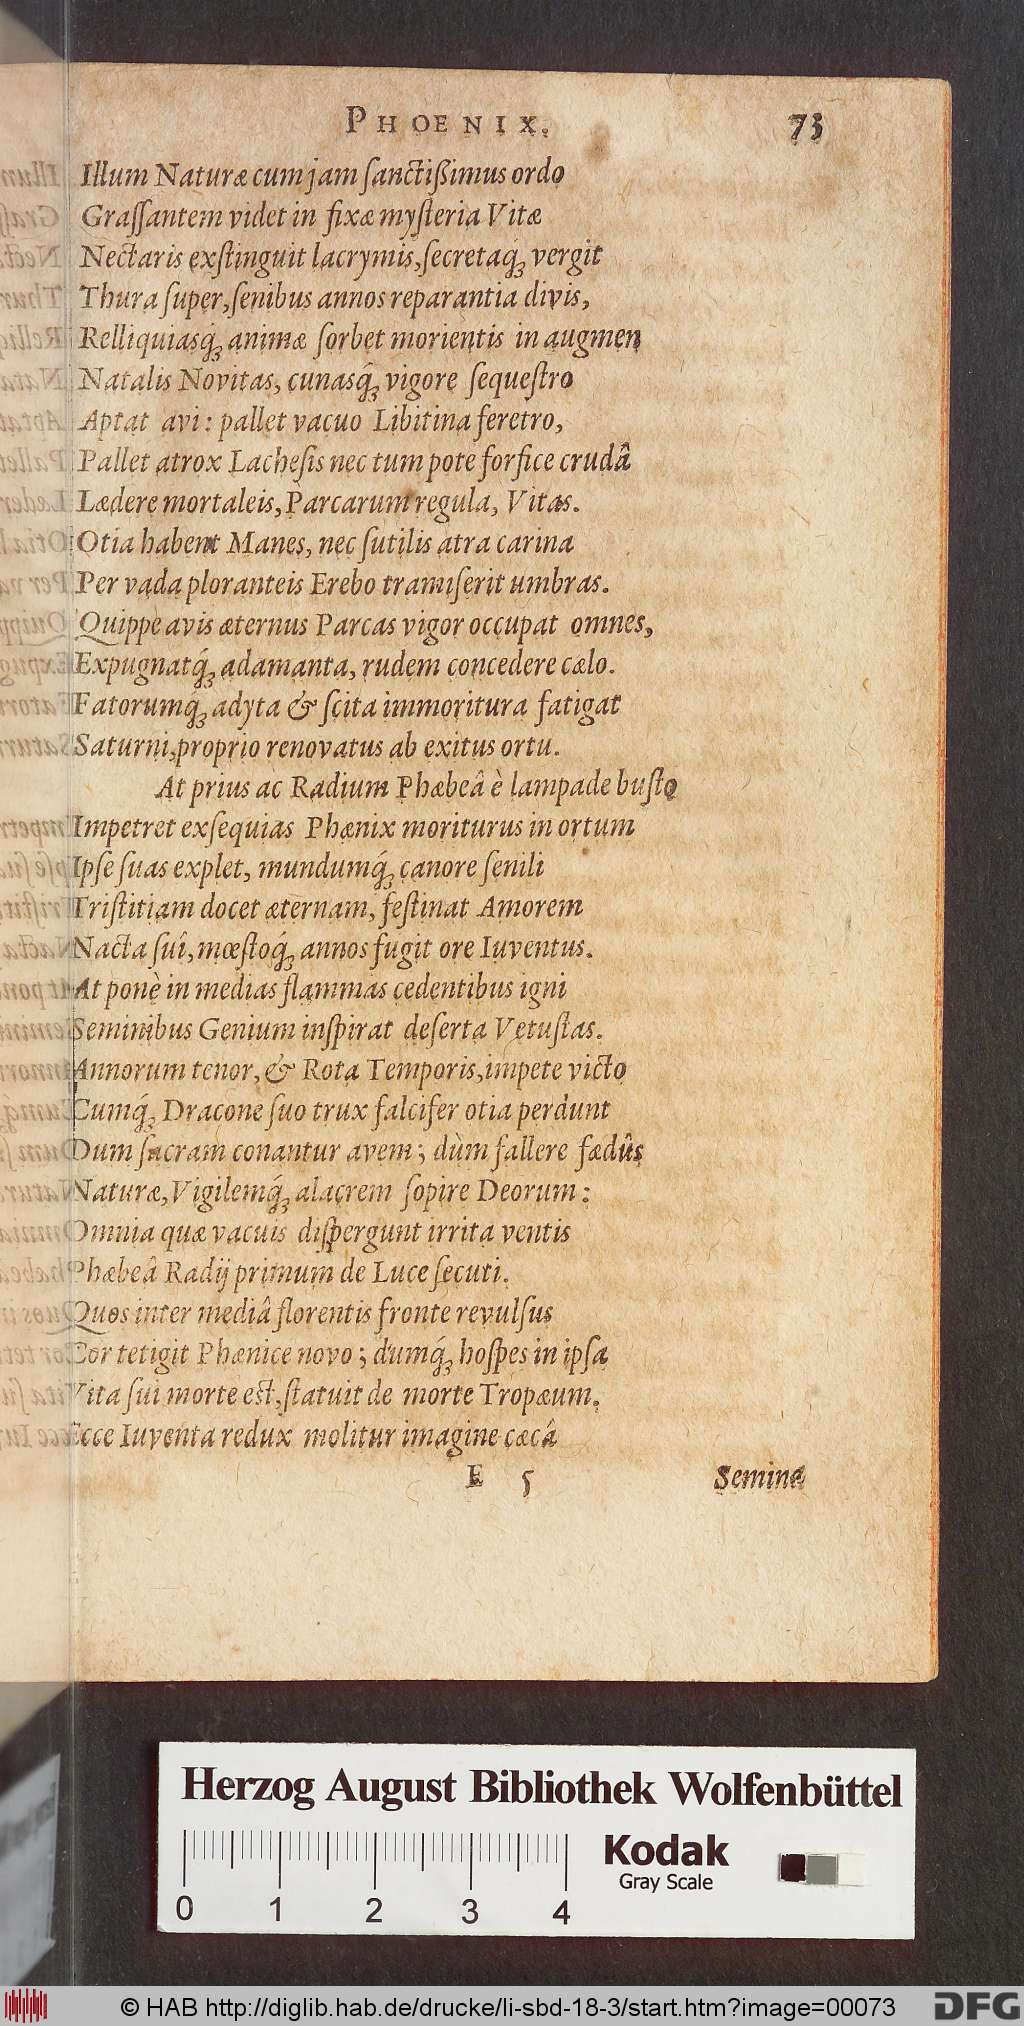 PHOENIX. 73
Illum Naturæ cum jam ſanctißimus ordo
Graſſantem videt in fixæ myſteria Vitæ
Nectaris exſtinguit lacrymis, ſecretaq́ꝫ vergit
Thura ſuper, ſenibus annos reparantia divis,
Relliquiasq́ꝫ animæ ſorbet morientis in augmen
Natalis Novitas, cunasq́ꝫ vigore ſequeſtro
Aptat avi: pallet vacuo Libitina feretro,
Pallet atrox Lacheſis nec tum pote forfice crudâ
Lædere mortaleis, Parcarum regula, Vitas.
Otia habent Manes, nec ſutilis atra carina
Per vada ploranteis Erebo tramiſerit umbras.
Quippe avis æternus Parcas vigor occupat omnes,
Expugnatq́ꝫ adamanta, rudem concedere cælo.
Fatorumq́ꝫ adyta & ſcita immoritura fatigat
Saturni, proprio renovatus ab exitus ortu.
At prius ac Radium Phæbeâ è lampade buſto
Impetret exſequias Phœnix moriturus in ortum
Ipſe ſuas explet, mundumq́ꝫ canore ſenili
Triſtitiam docet æternam, feſtinat Amorem
Nacta ſuî, mœſtoq́ꝫ annos fugit ore Iuventus.
At ponè in medias flammas cedentibus igni
Seminibus Genium inſpirat deſerta Vetuſtas.
Annorum tenor, & Rota Temporis, impete victo
Cumq́ꝫ Dracone ſuo trux falcifer otia perdunt
Dum ſacram conantur avem; dùm fallere fædûs
Naturæ, Vigilemq́ꝫ alacrem ſopire Deorum:
Omnia quæ vacuis diſpergunt irrita ventis
Phæbeâ Radij primum de Luce ſecuti.
Quos inter mediâ florentis fronte revulſus
Cor tetigit Phœnice novo; dumq́ꝫ hoſpes in ipſa
Vita ſui morte eſt, ſtatuit de morte Tropæum.
Ecce Iuventa redux molitur imagine cæcâ
E 5 Semina
Herzog August Bibliothek Wolfenbüttel
0 1 2 3 4
Kodak
Gray Scale
© HAB http://diglib.hab.de/drucke/li-sbd-18-3/start.htm?image=00073
DFG